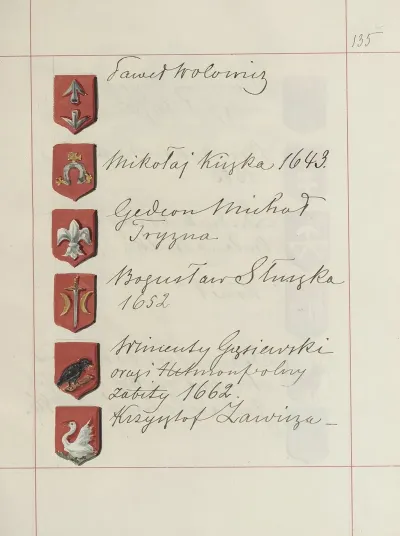 135
Paweł Wołowicz
Mikołaj Kiszka 1643.
Gedeon Michał
Tryzna
Bogusław Słuszka
1652
Wincenty Gąsiewski
oraz i Hetman polny
zabity 1662.
Krzysztof Zawisza